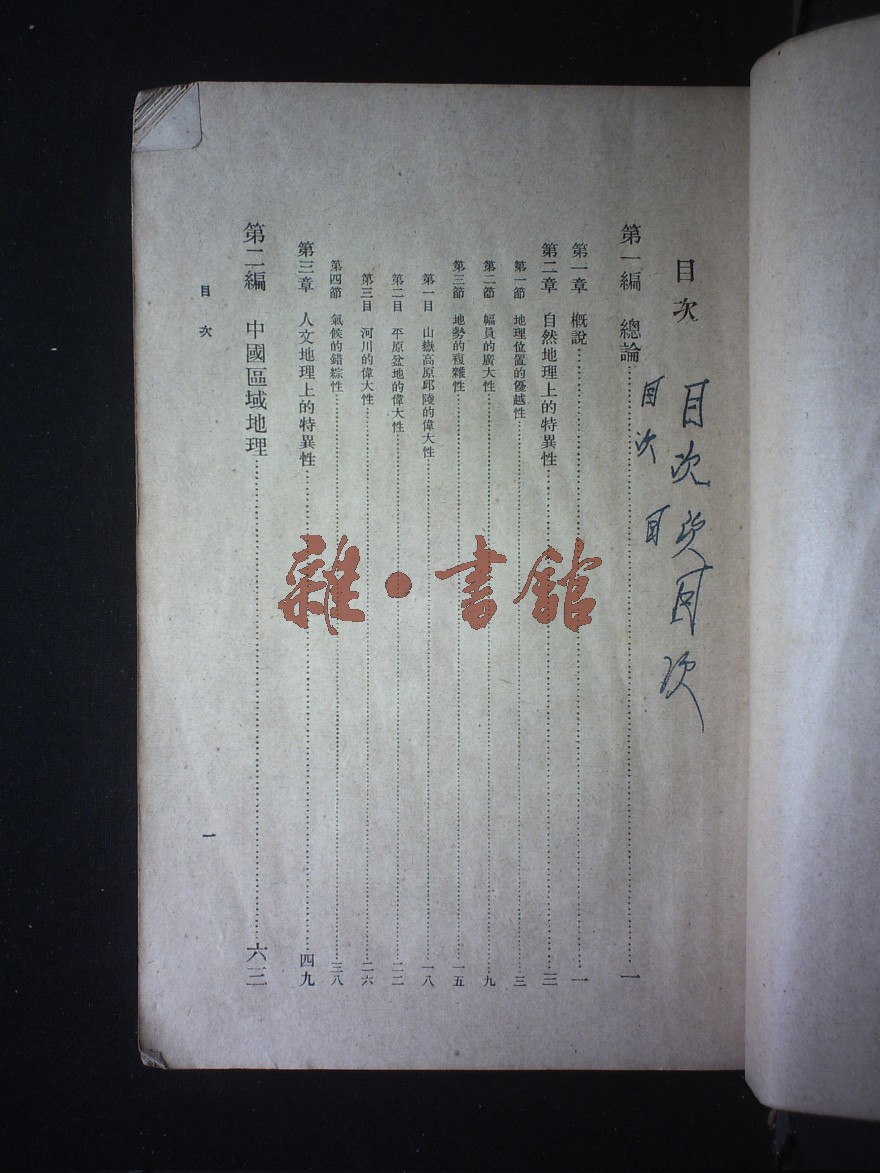 目次
目次次目次
目次目
第一編　總論……一
第一章　概說……一
第二章　自然地理上的特異性……三
第一節　地理位置的優越性……三
第二節　幅員的廣大性……九
第三節　地勢的複雜性……一五
第一目　山嶽高原邱陵的偉大性……一八
第二目　平原盆地的偉大性……二二
第三目　河川的偉大性……二六
第四節　氣候的錯綜性……三八
第三章　人文地理上的特異性……四九
第二編　中國區域地理……六三
目次　一
雜·書館